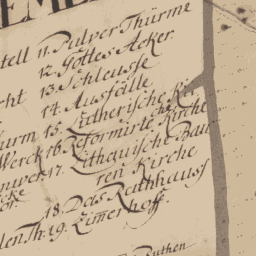 EMEN
tell 11. Pulver Thürme
12. Gottes Acker.
ht 13. Schleusse
14. Ausfälle
urm 15. Lutherische Kir
Werck 16. Reformirte Kirche
nwer 17. Lithauische Bau
ren Kirche
18. Das Rathhauss
len Th. 19. Eimerhoff.
Ruthen